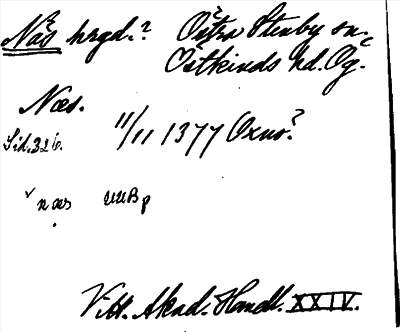 Näs hrgd.? Östra Stenby sn.
Östkinds hd. Ög.
Næs.
Sid. 326. 11/11 1377 Oxno?
næs
Vitt. Akad. Handl. XXIV.